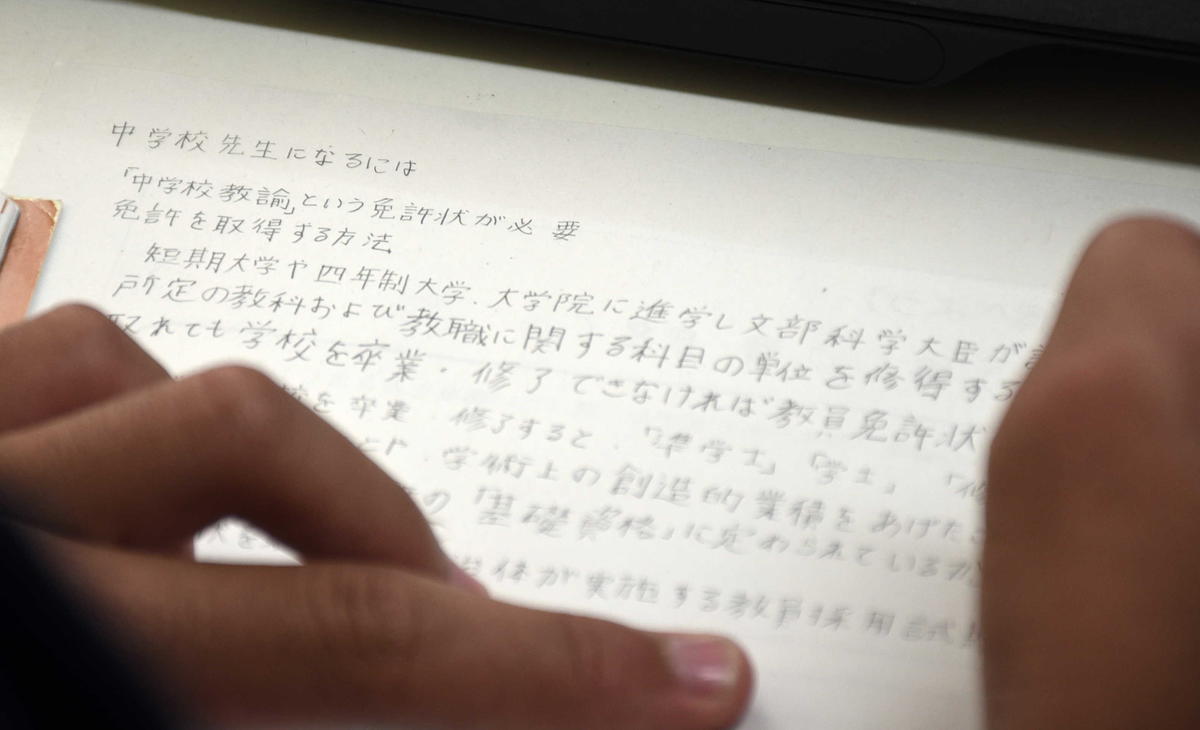 中学校先生になるには
「中学校教諭」という免許状が必要
免許を取得する方法
短期大学や四年制大学、大学院に進学し文部科学大臣が
所定の教科および教職に関する科目の単位を修得する
取れても学校を卒業・修了できなければ教員免許状
校を卒業・修了すると、「準学士」「学士」「修
学術上の創造的業績をあげた
の「基礎資格」に定められているが
が実施する教員採用試